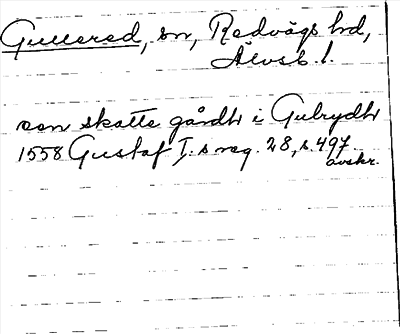 Gullered, sn, Redvägs hd,
Älvsb. l.
een skatte gårdh i Gulrydh
1558 Gustaf I:s reg. 28, s. 497
avskr.